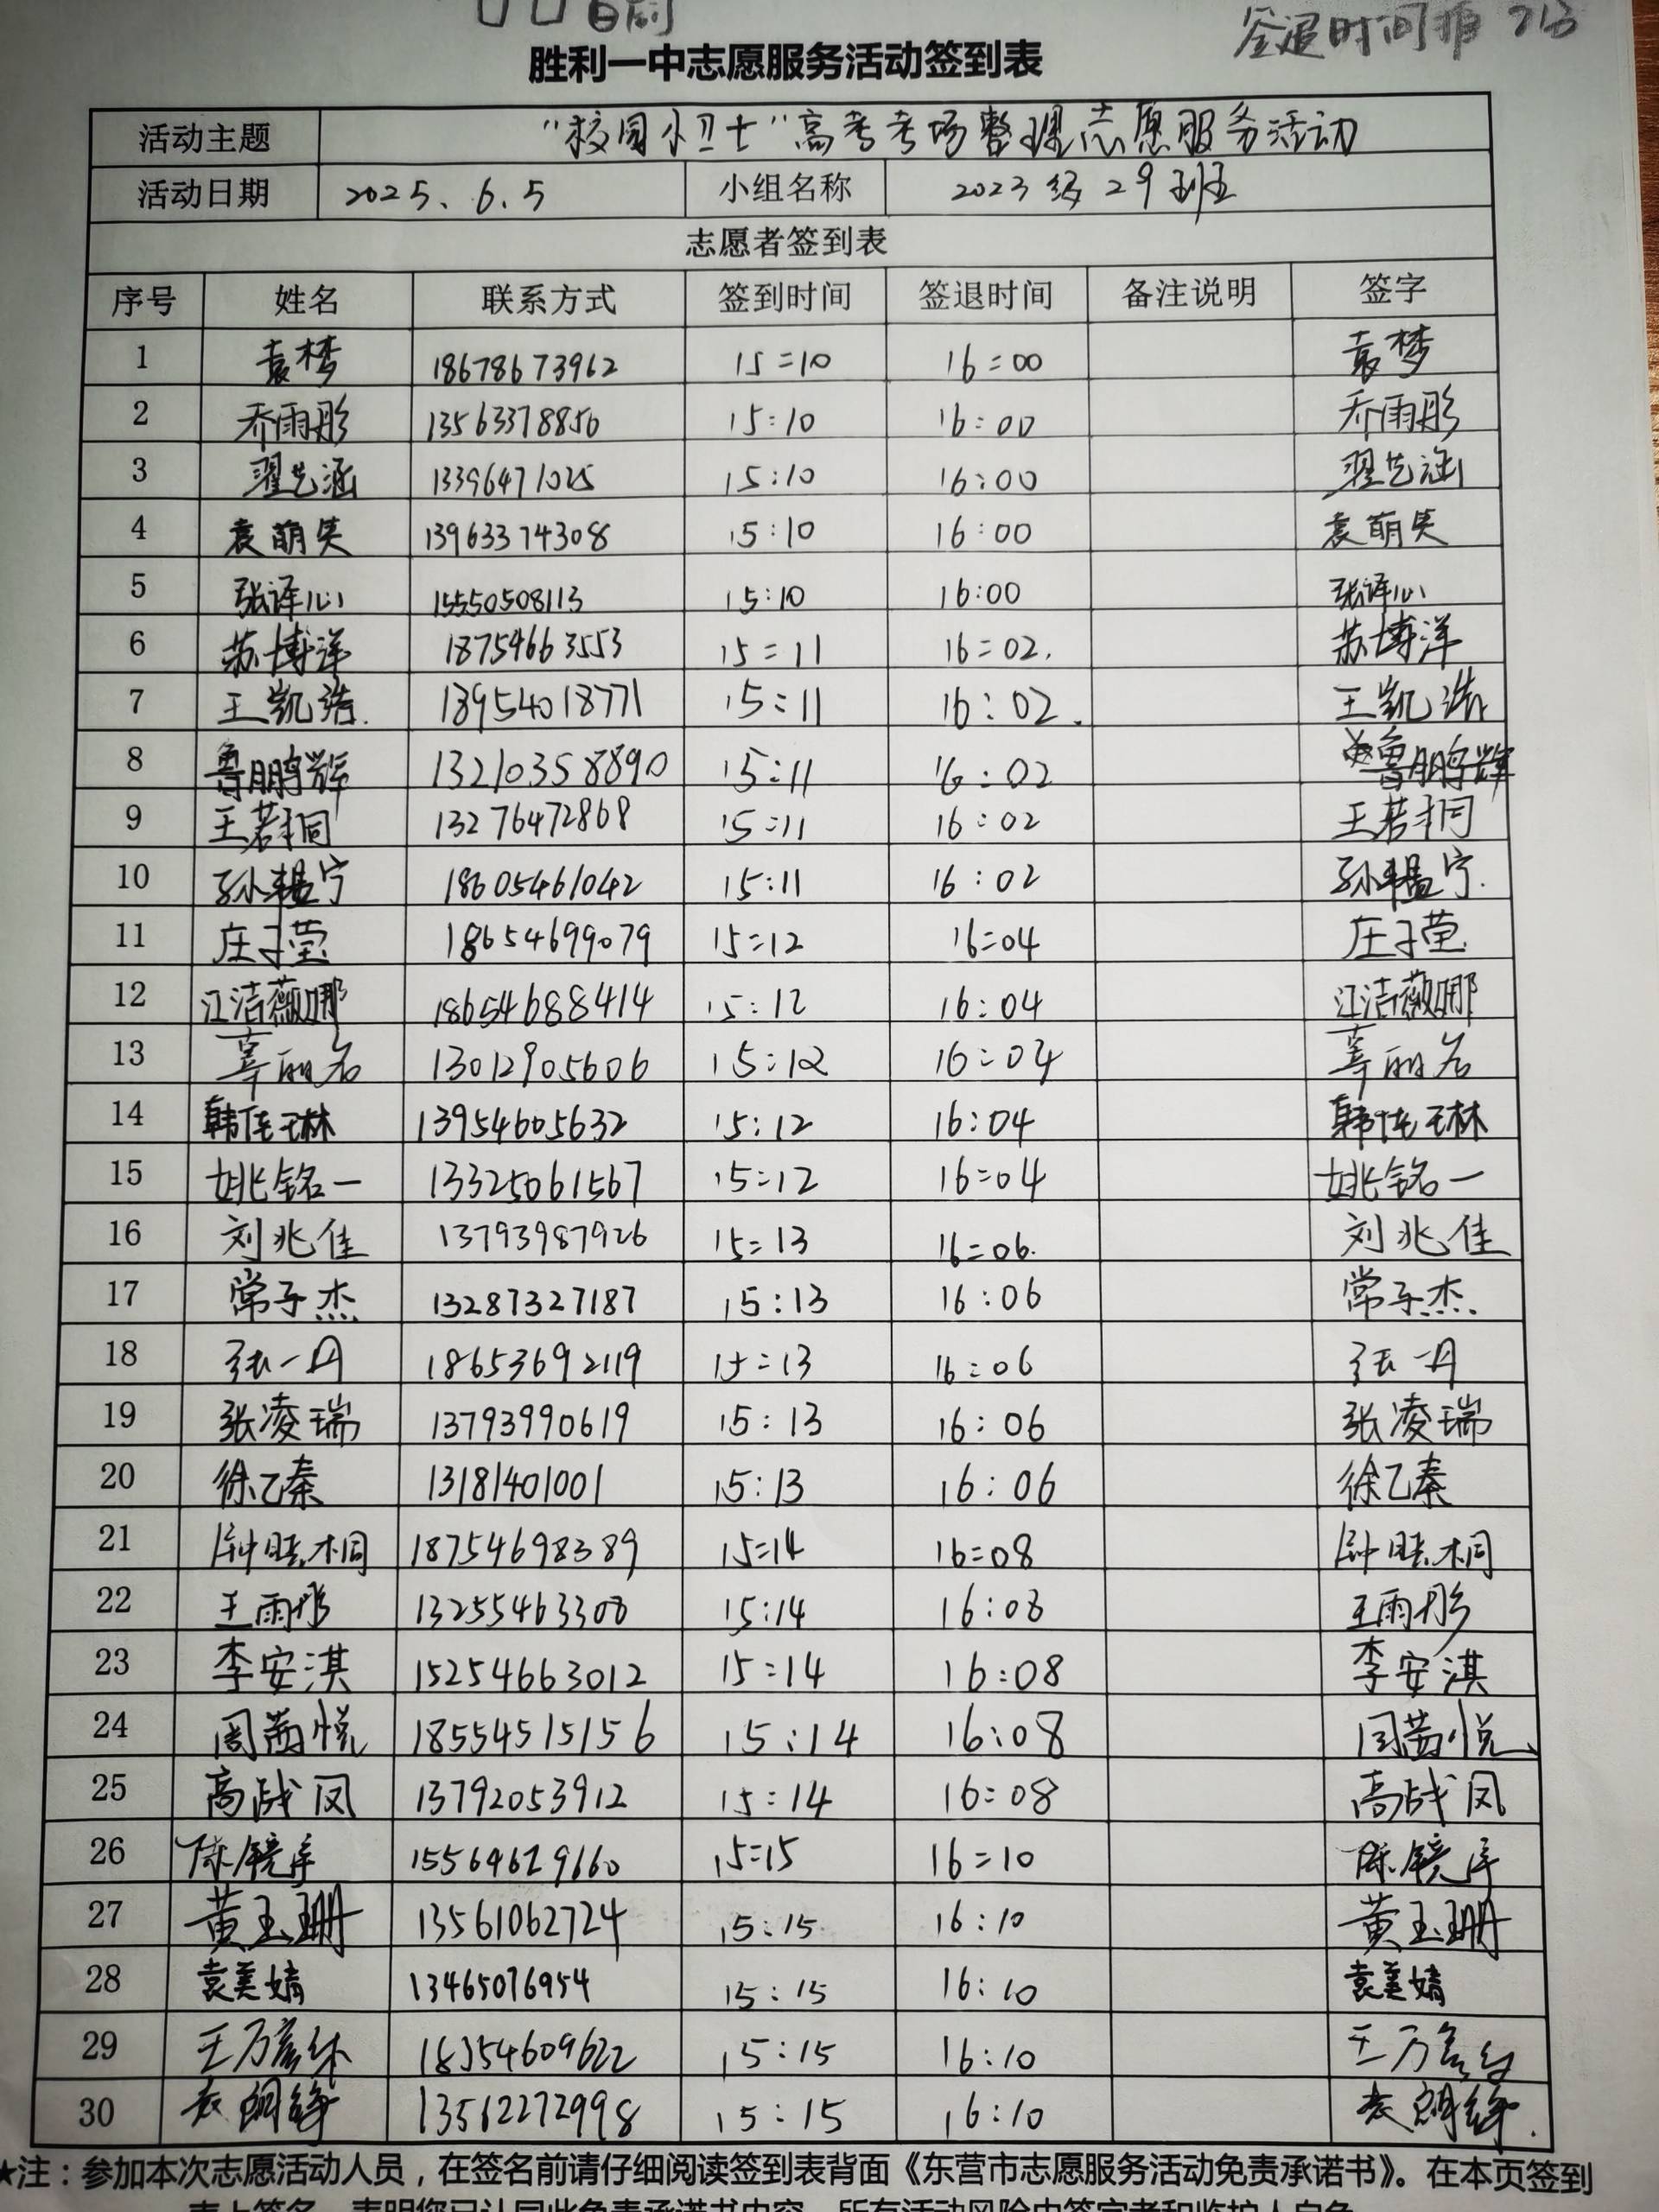 签退时间
胜利一中志愿服务活动签到表
活动主题 “校园小卫士”高考考场整理志愿服务活动
活动日期 2025.6.5 小组名称 2023级29班
志愿者签到表
序号 姓名 联系方式 签到时间 签退时间 备注说明 签字
1 袁梦 18678673962 15:10 16:00 袁梦
2 乔雨彤 13563378850 15:10 16:00 乔雨彤
3 翟艺涵 13396471025 15:10 16:00 翟艺涵
4 袁萌 13963374308 15:10 16:00 袁萌
5 张译心 15550508113 15:10 16:00 张译心
6 苏博洋 18754663553 15:11 16:02. 苏博洋
7 王凯浩. 13954018771 15:11 16:02. 王凯浩
8 鲁鹏辉 13210358890 15:11 16:02 鲁鹏辉
9 王若桐 13276472868 15:11 16:02 王若桐
10 孙韫宁 18605461042 15:11 16:02 孙韫宁.
11 庄子莹 18654699079 15:12 16:04 庄子莹
12 江洁薇娜 18654688414 15:12 16:04 江洁薇娜
13 13012905606 15:12 16:04
14 韩佳琳 13954605632 15:12 16:04 韩佳琳
15 姚铭一 13325061567 15:12 16:04 姚铭一
16 刘兆佳 13793987926 15:13 16:06. 刘兆佳
17 常子杰 13287327187 15:13 16:06 常子杰
18 张一丹 18653692119 15:13 16:06 张一丹
19 张凌瑞 13793990619 15:13 16:06 张凌瑞
20 徐乙秦 13181401001 15:13 16:06 徐乙秦
21 18754698389 15:14 16:08
22 王雨彤 13255463308 15:14 16:08 王雨彤
23 李安淇 15254663012 15:14 16:08 李安淇
24 周茜悦 18554515156 15:14 16:08 周茜悦
25 高战凤 13792053912 15:14 16:08 高战凤
26 15564629160 15:15 16:10
27 黄玉珊 13561062724 15:15 16:10 黄玉珊
28 袁美婧 13465076954 15:15 16:10 袁美婧
29 18354609622 15:15 16:10
30 13562272998 15:15 16:10
★注：参加本次志愿活动人员，在签名前请仔细阅读签到表背面《东营市志愿服务活动免责承诺书》。在本页签到